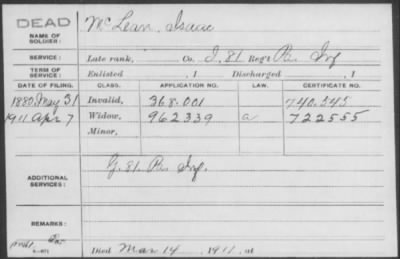 DEAD
NAME OF SOLDIER: McLean, Isaac
SERVICE: Late rank, Co. I, 81 Reg't Pa Inf
TERM OF SERVICE: Enlisted , 1 Discharged , 1
DATE OF FILING. CLASS. APPLICATION NO. LAW. CERTIFICATE NO.
1880 May 31 Invalid, 368.001 740.545
1911 Apr 7 Widow, 962339 a 722555
Minor,
ADDITIONAL SERVICES: G. 81. Pa Inf.
REMARKS:
Died Mar 14, 1911, at